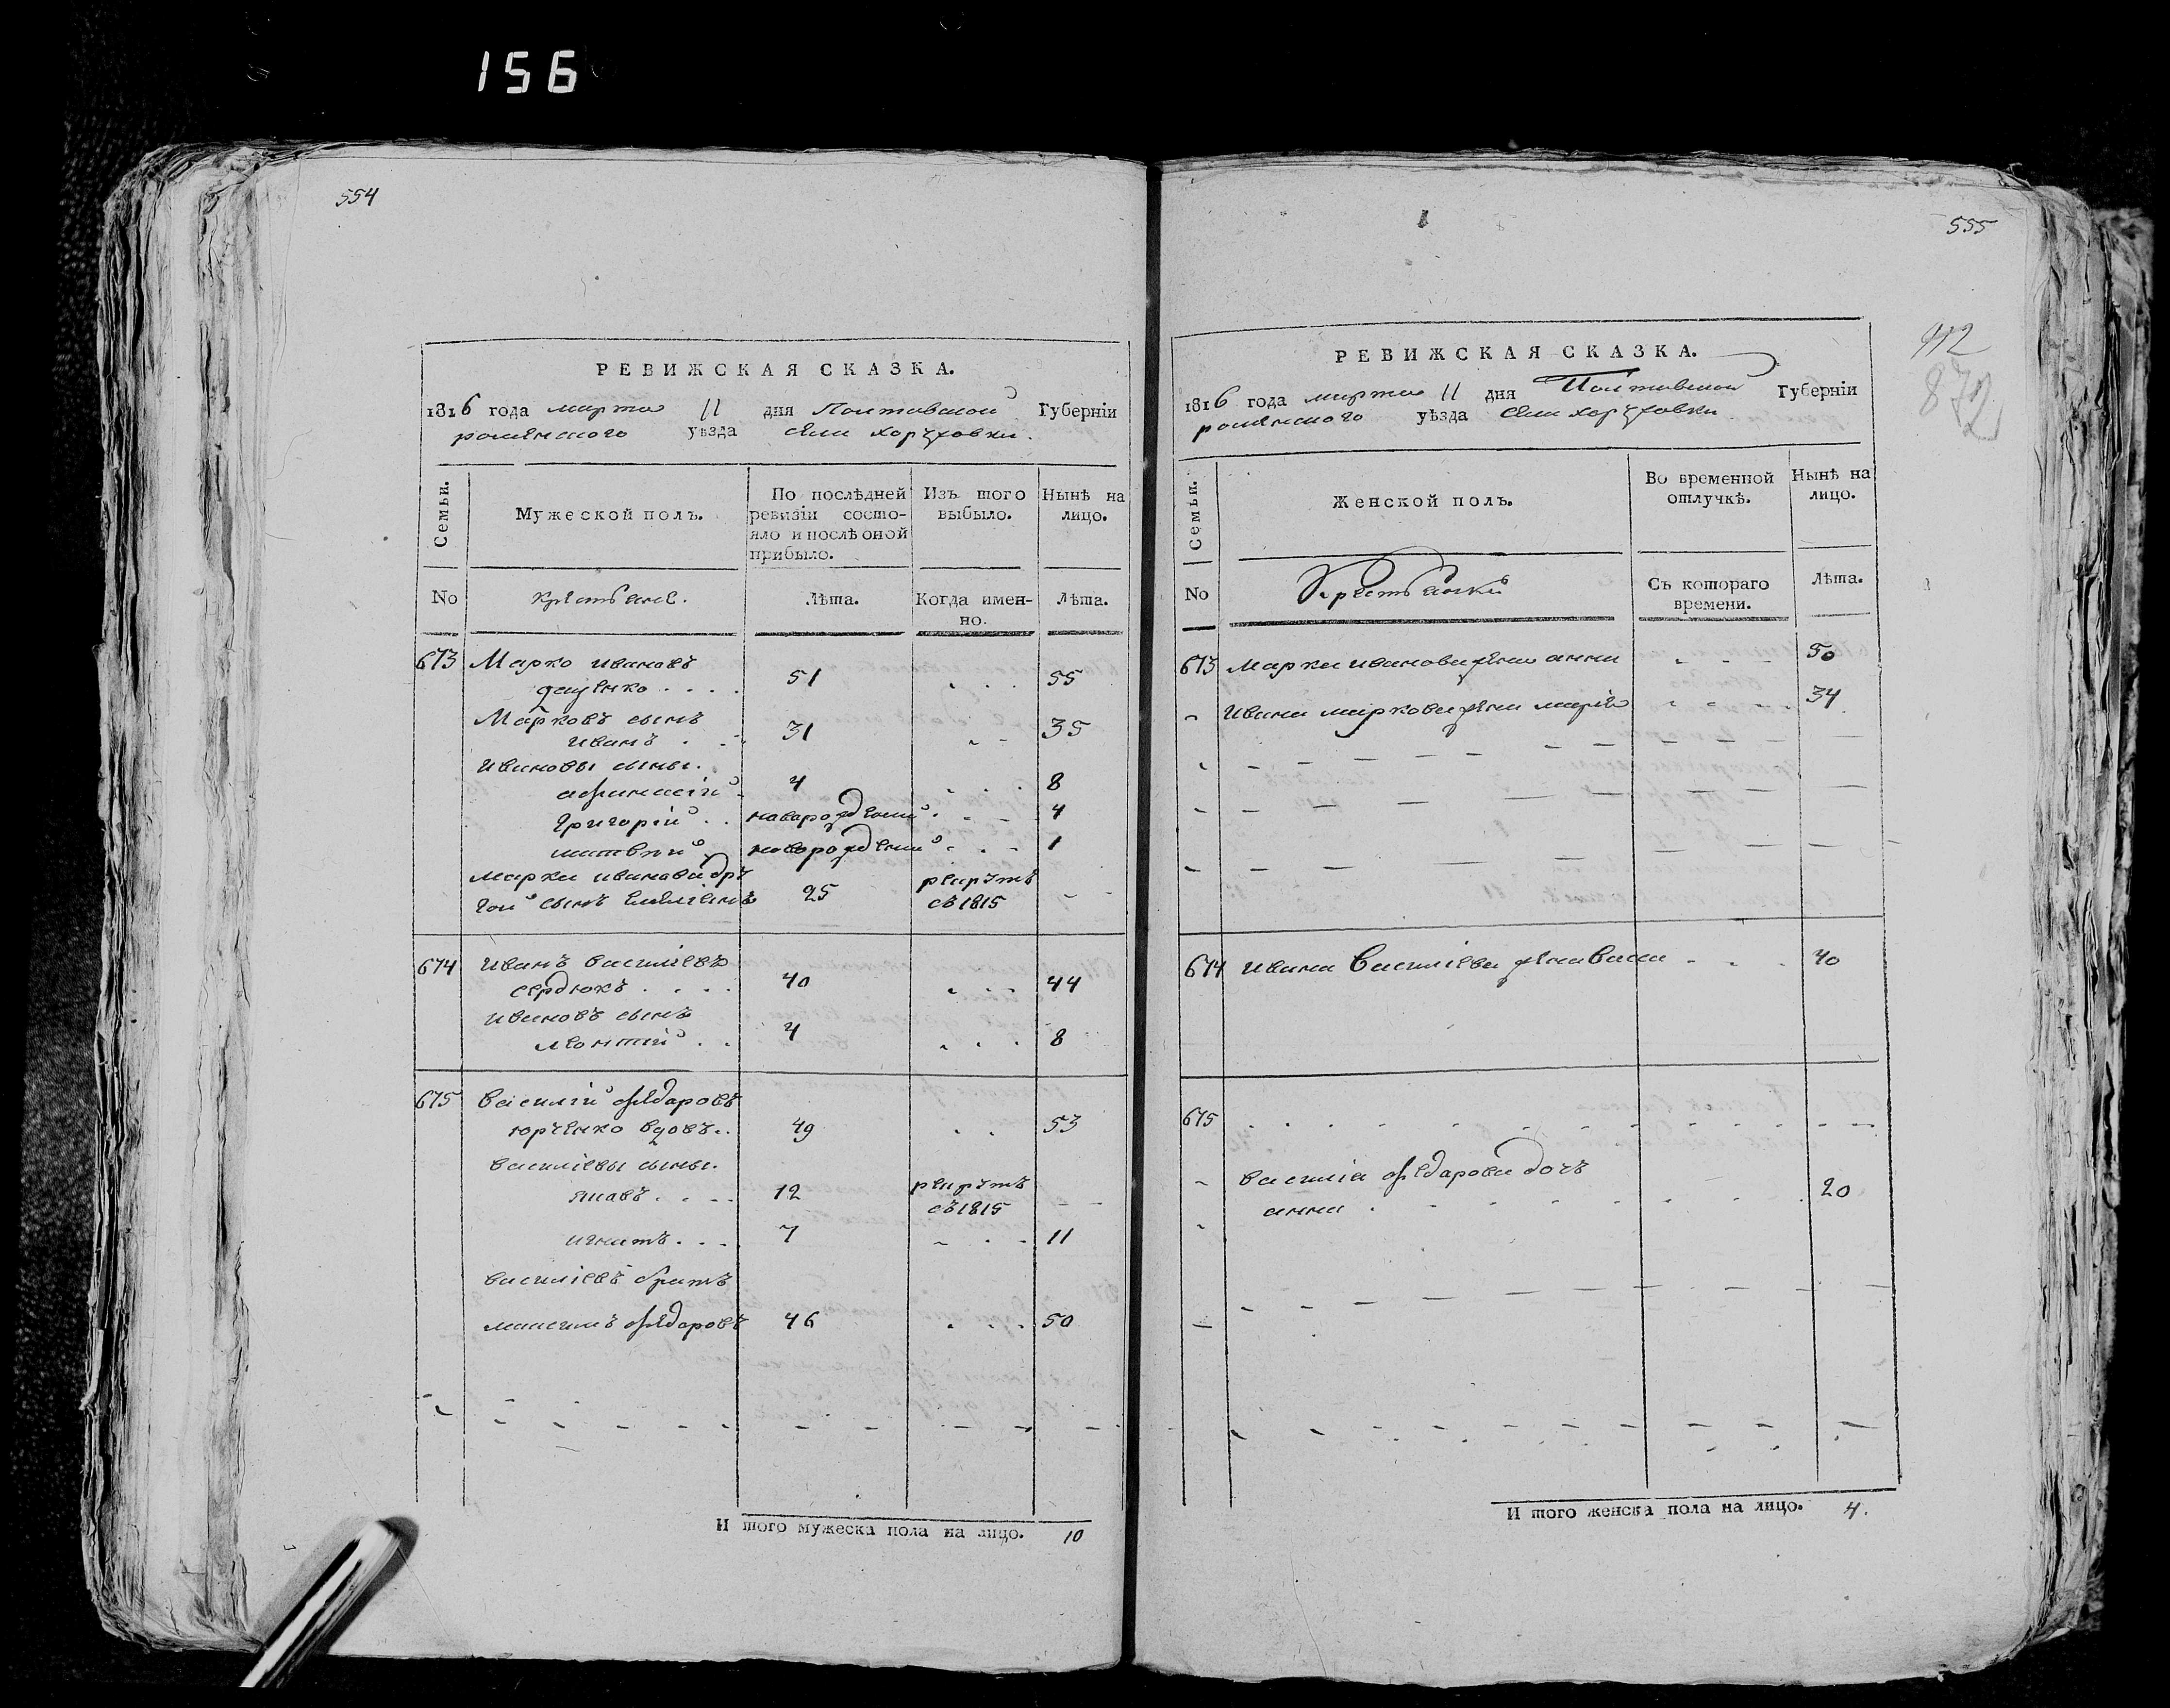 156
554
РЕВИЖСКАЯ СКАЗКА.
1816 года марта 11 дня Полтавской Губерніи
роменского уѣзда села хоружовки.
Семьи.
Мужеской полъ.
По послѣдней ревизіи состо-яло и послѣ оной прибыло.
Изъ того выбыло.
Нынѣ на лицо.
No
Крестьяне.
Лѣта.
Когда имен-но.
Лѣта.
673 Марко ивановъ
51 55
Марковъ сынъ
иванъ 31 35
ивановы сыны.
афанасій 4 8
григорій новорождений 4
матвѣй новорождений 1
марка иванова дру
гой сынъ 25 рекрутъ
съ 1815
674 иванъ василіевъ
сердюкъ 40 44
ивановъ сынъ
леонтій 4 8
675 василій федаровъ
юрченко вдовъ 49 53
василіевы сыны.
яковъ 12 рекрутъ
съ 1815
игнатъ 7 11
василіевъ братъ
максимъ федаровъ 46 50
И того мужеска пола на лицо. 10
555
872
РЕВИЖСКАЯ СКАЗКА.
1816 года марта 11 дня Полтавской Губерніи
роменского уѣзда села хоружовки
Семьи.
Женской полъ.
Во временной отлучкѣ.
Нынѣ на лицо.
No
Крестьянки
Съ котораго времени.
Лѣта.
673 Марка иванова жена анна 50
ивана маркова жена марія 34
674 ивана василіева жена 40
675
василія федарова дочъ
анна 20
И того женска пола на лицо. 4.